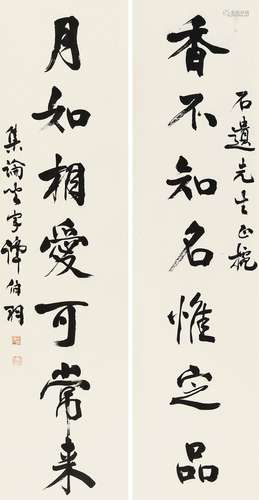 石遺先生正
香不知名惟定品
月如相愛可常来
集論坐字譚伯羽